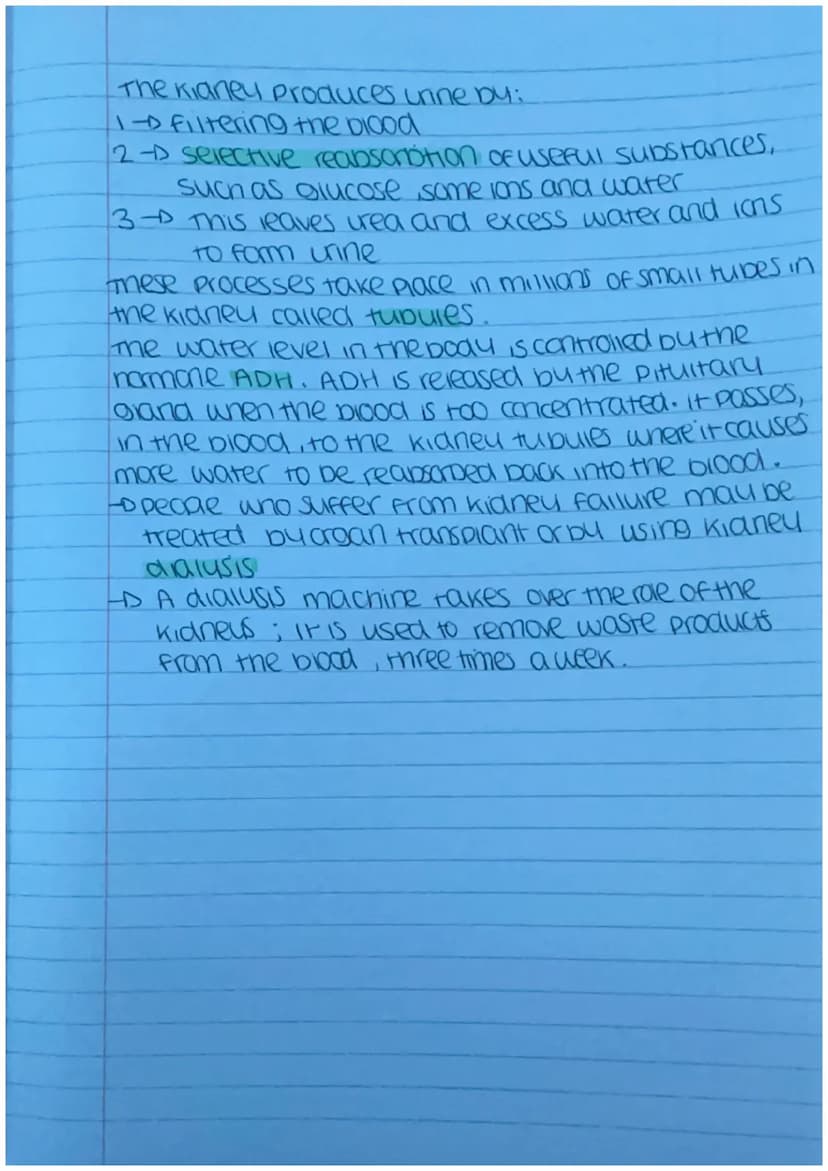 The kidney produces urine by:
1 → filtering the blood
2 → selective reabsorbtion of useful substances,
such as glucose, some ions and water
3 → This leaves urea and excess water and ions
to form urine
These processes take place in millions of small tubes in
the kidney called tubules.
The water level in the body is controlled by the
hormone ADH. ADH is released by the pituitary
gland when the blood is too concentrated. It passes,
in the blood, to the kidney tubules where it causes
more water to be reabsorbed back into the blood.
→ People who suffer from kidney failure may be
treated by organ transplant or by using kidney
dialysis
→ A dialysis machine takes over the role of the
kidneys; it is used to remove waste products
from the blood, three times a week.